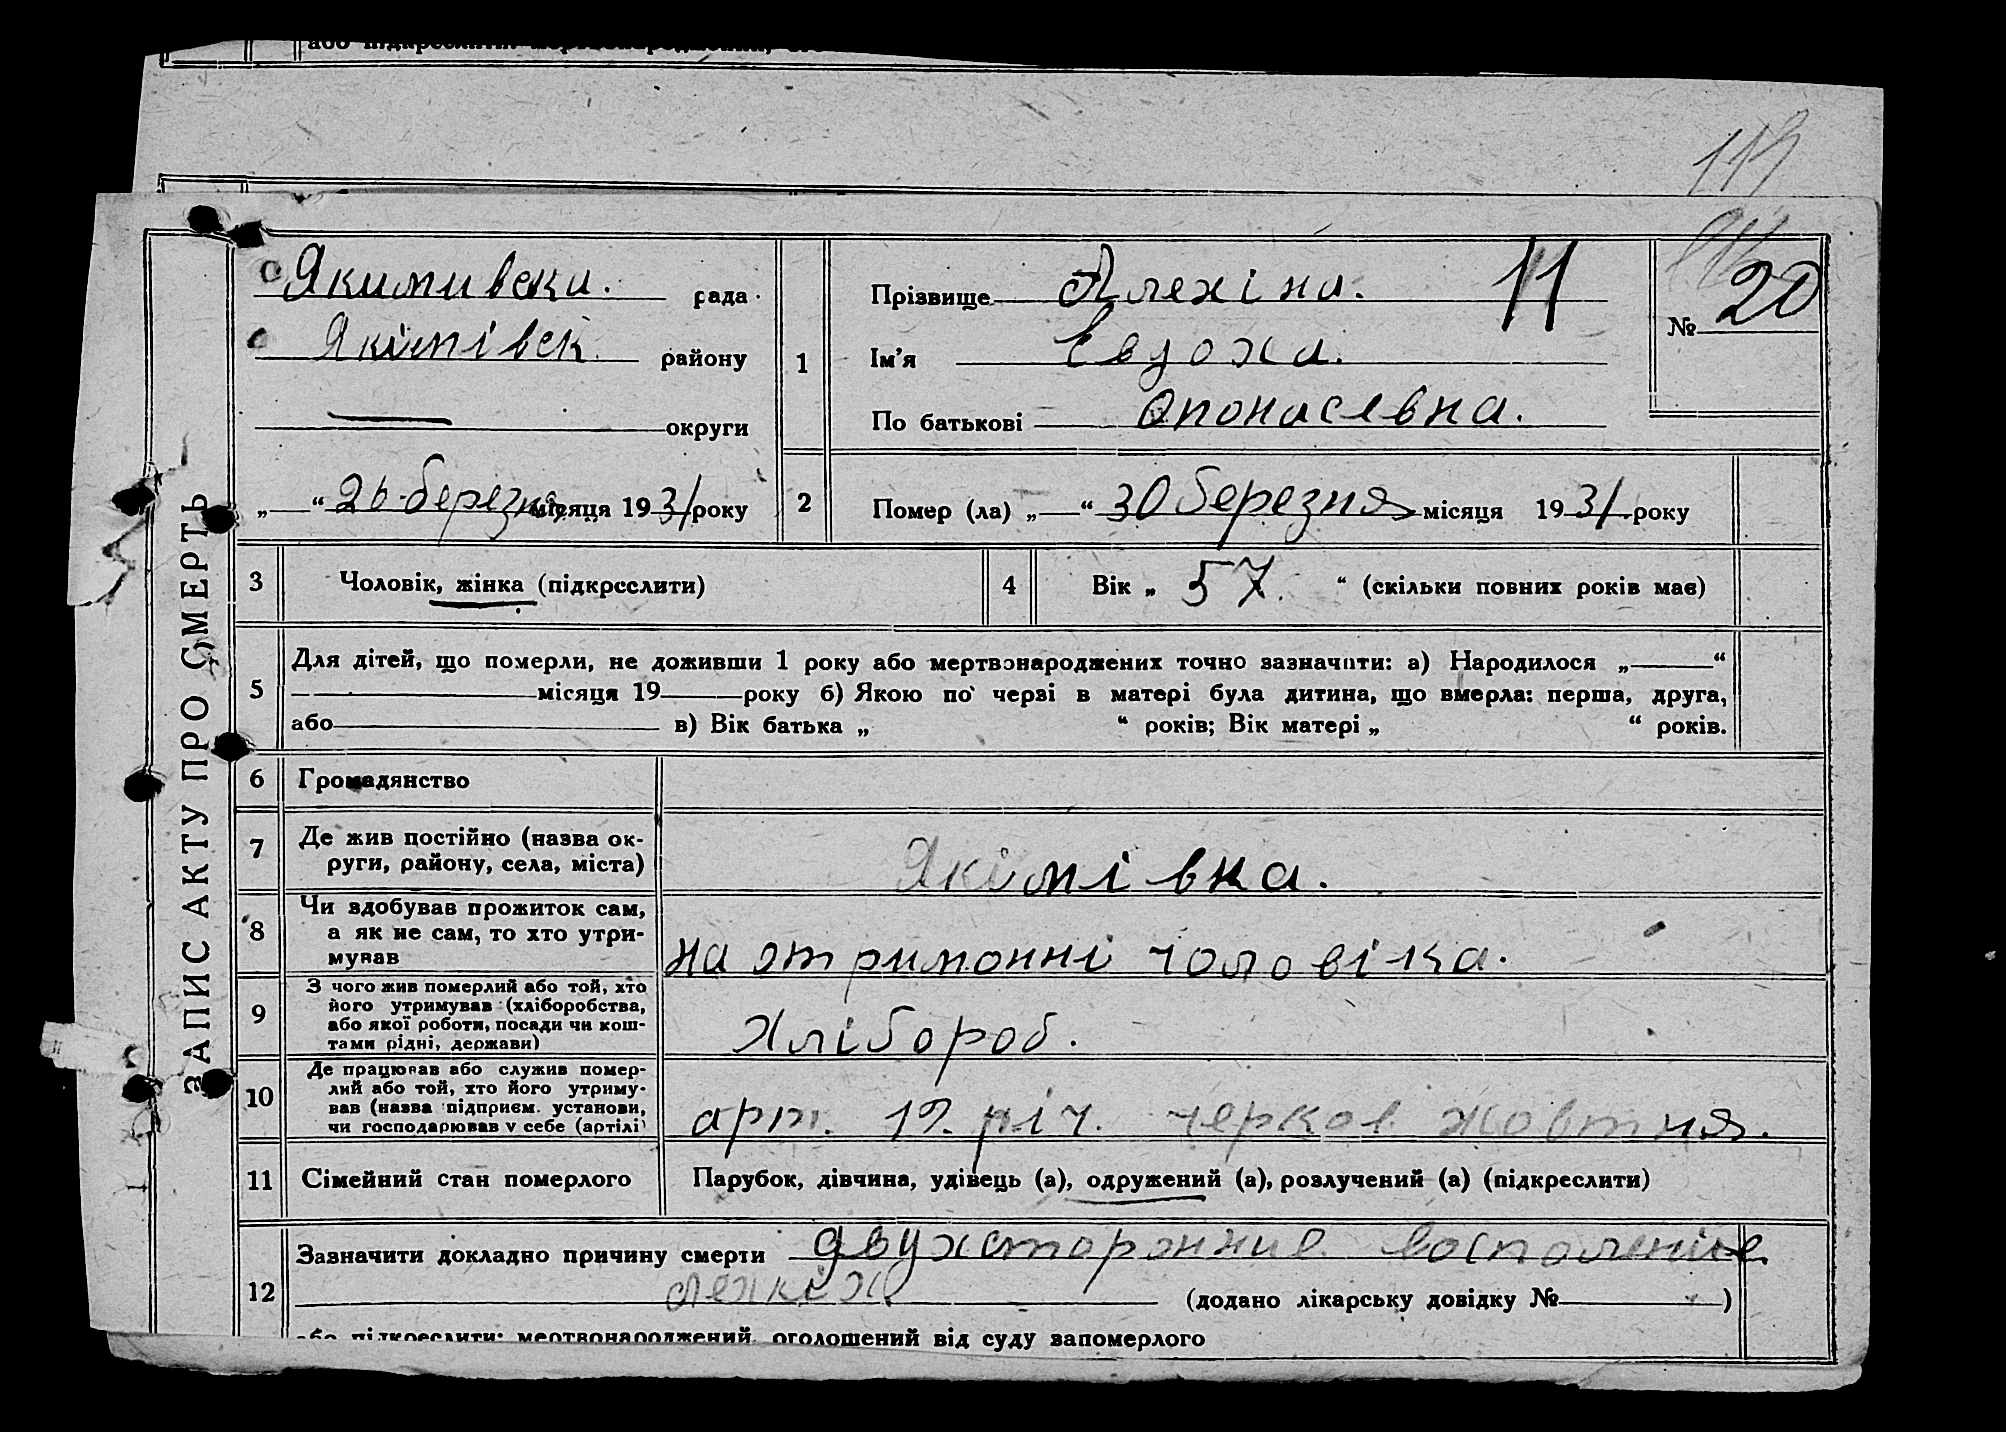 або підкреслити: мертвонароджений,
113
ЗАПИС АКТУ ПРО СМЕРТЬ
Якимивски. рада
Якімівск. району
округи
„ “ 26 березня місяця 1931 року
1
Прізвище Алехіна. 11
Ім’я Евдоха.
По батькові Опонасевна.
№ 20
2 Помер (ла) „ “ 30 березня місяця 1931 року
3 Чоловік, жінка (підкреслити)
4 Вік „ 57. “ (скільки повних років має)
5 Для дітей, що померли, не доживши 1 року або мертвонароджених точно зазначити: а) Народилося „ “
місяця 19 року б) Якою по черзі в матері була дитина, що вмерла: перша, друга,
або в) Вік батька „ “ років; Вік матері „ “ років.
6 Громадянство
7 Де жив постійно (назва ок-
руги, району, села, міста)
Якімівка.
8 Чи здобував прожиток сам,
а як не сам, то хто утри-
мував
на отримонні чоловіка.
9 З чого жив померлий або той, хто
його утримував (хліборобства,
або якої роботи, посади чи кош-
тами рідні, держави)
Хлібороб.
10 Де працював або служив помер-
лий або той, хто його утриму-
вав (назва підприєм. установи,
чи господарював у себе (артілі)
арт. 12. річ. черков. жовтня.
11 Сімейний стан померлого
Парубок, дівчина, удівець (а), одружений (а), розлучений (а) (підкреслити)
12 Зазначити докладно причину смерти двухсторонние восполеніе
лехкіх (додано лікарську довідку № )
або підкреслити: мертвонароджений, оголошений від суду запомерлого